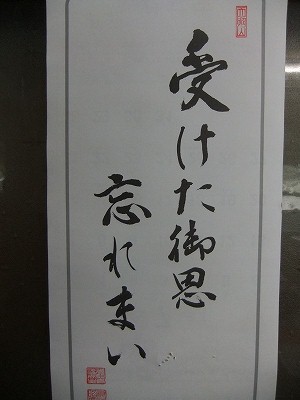 受けた御恩
忘れまい